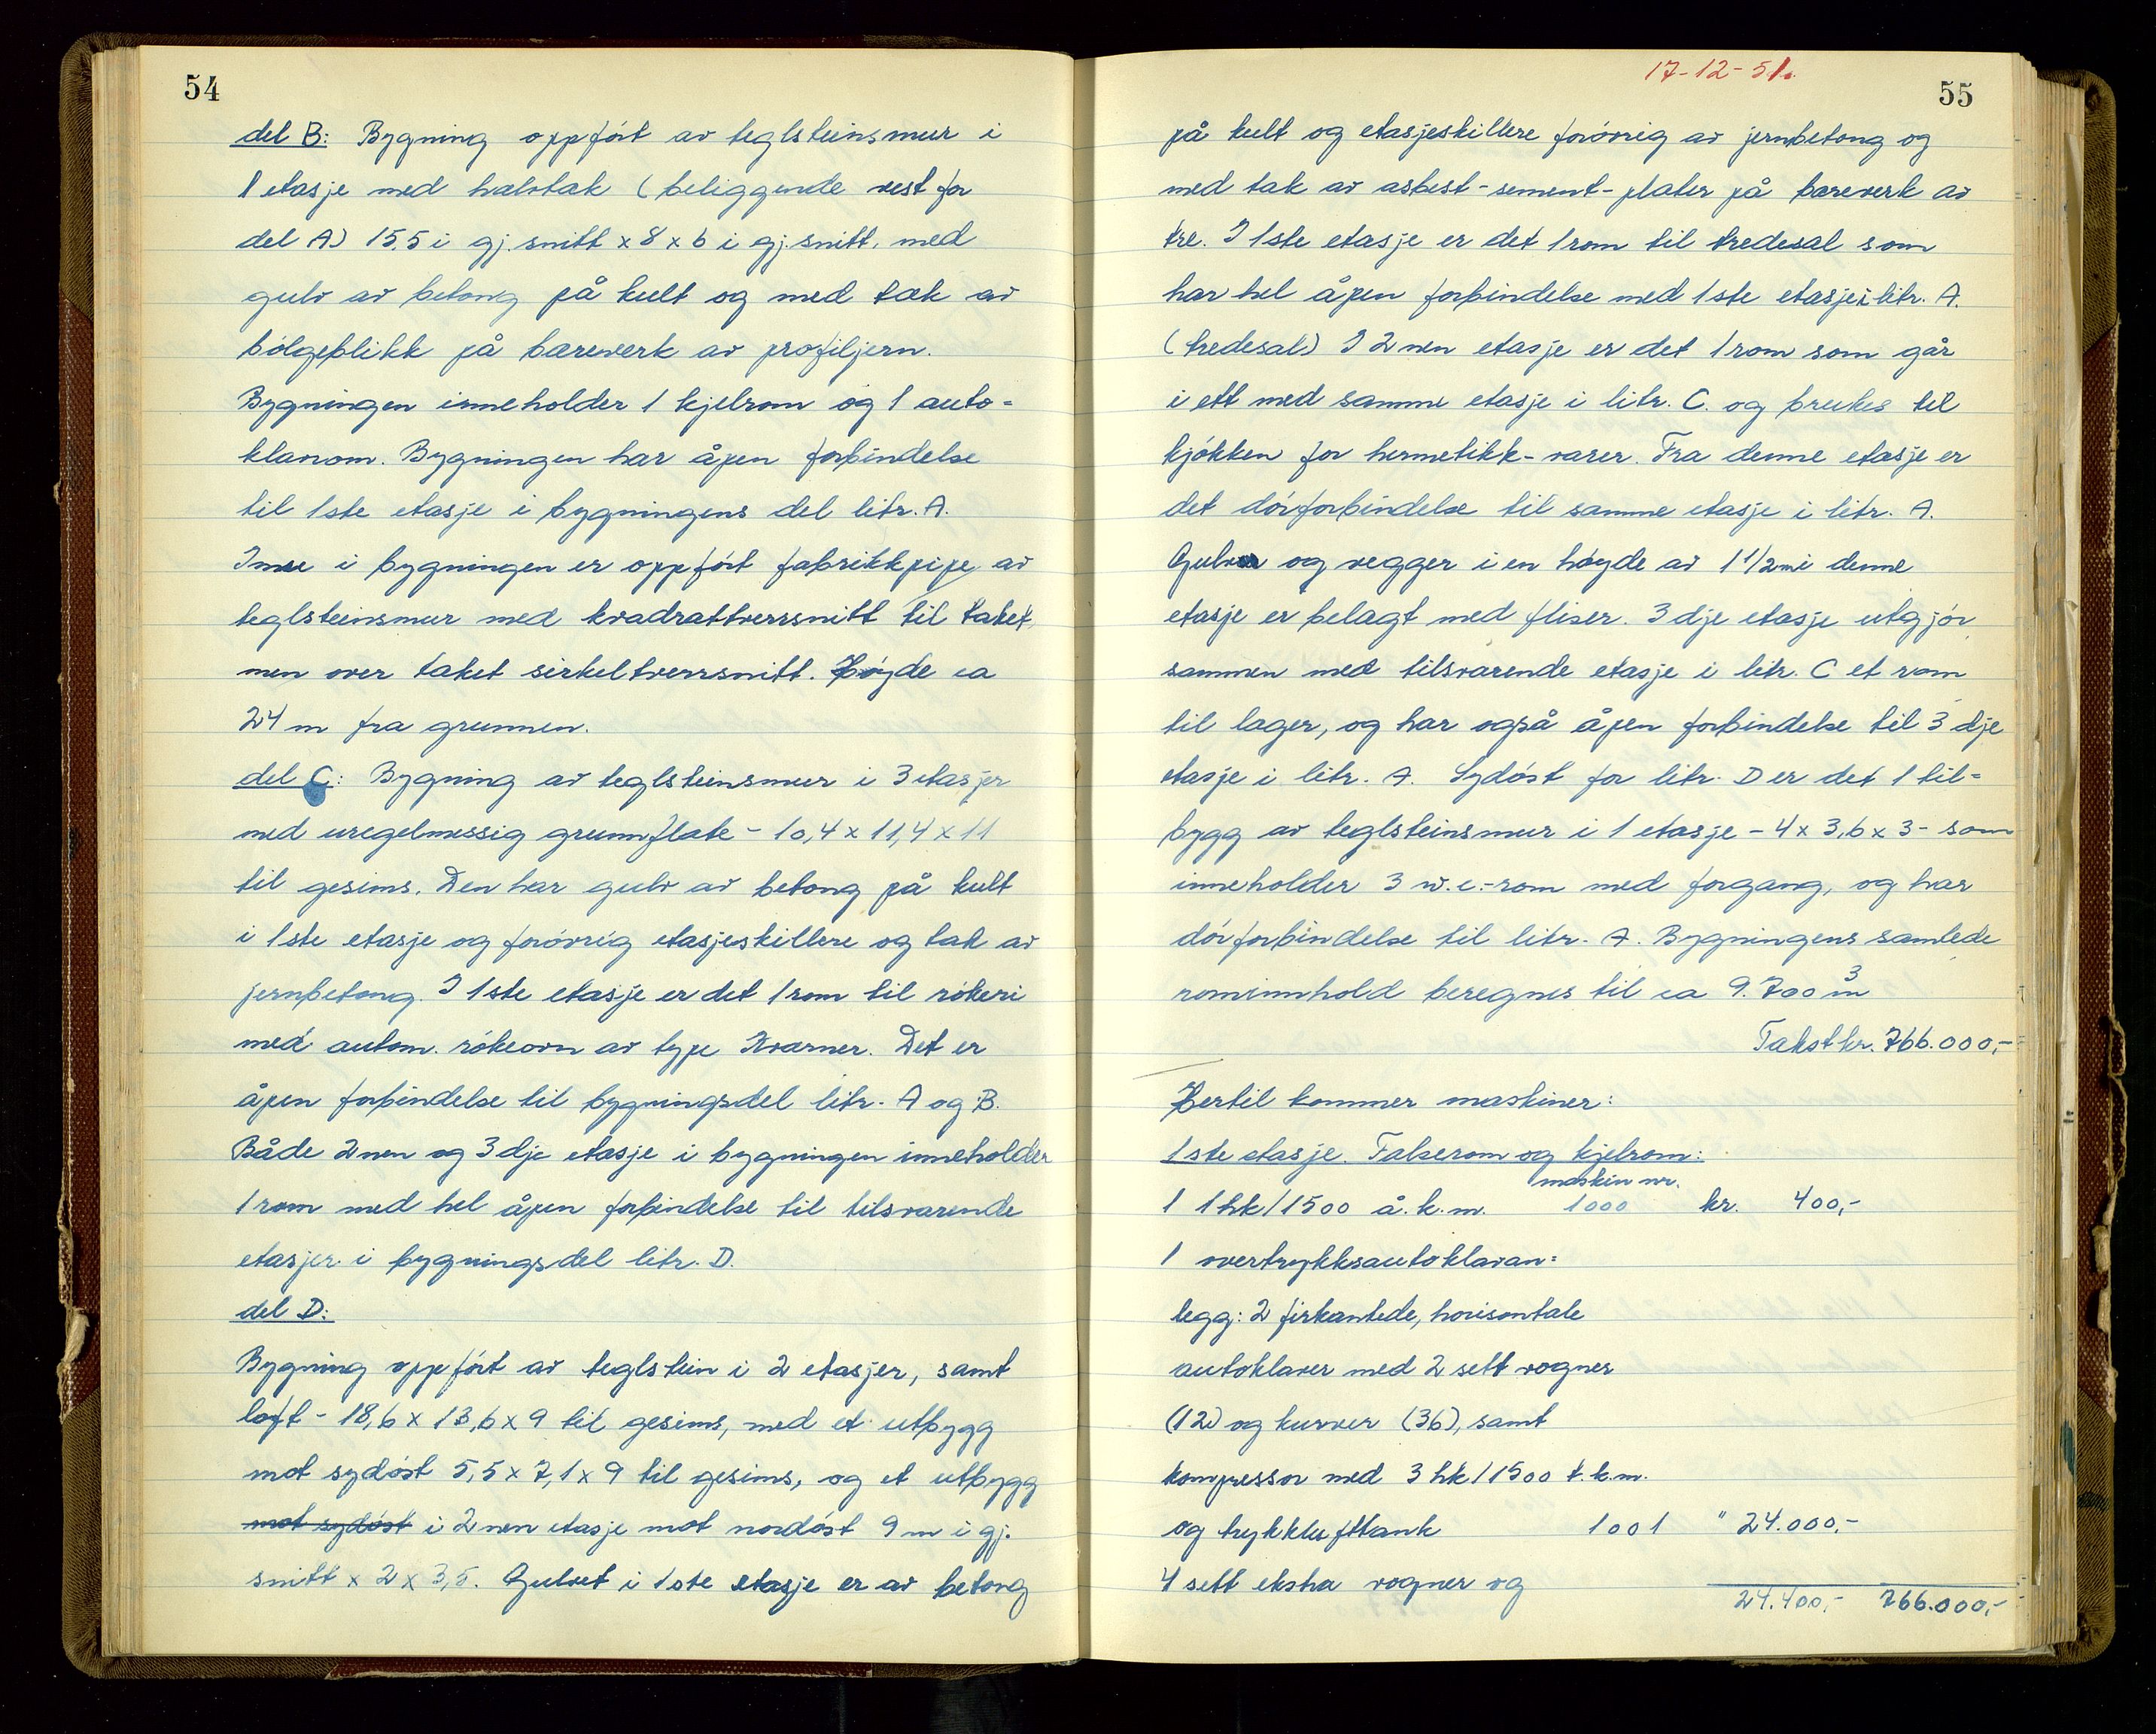 54
del B: Bygning oppført av teglsteinsmur i
1 etasje med halvtak (beliggende vest for
del A) 15,5 i gj.snitt x 8 x 6 i gj.snitt, med
gulv av betong på kult og med tak av
bølgeblikk på bæreverk av profiljern.
Bygningen inneholder 1 kjelrom og 1 auto=
klavrom. Bygningen har åpen forbindelse
til 1ste etasje i bygningens del litr. A.
Inne i bygningen er oppført fabrikkpipe av
teglsteinsmur med kvadrattverrsnitt til taket,
men over taket sirkeltverrsnitt. Høyde ca
24 m fra grunnen.
del C: Bygning av teglsteinsmur i 3 etasjer
med uregelmessig grunnflate - 10,4 x 11,4 x 11
til gesims. Den har gulv av betong på kult
i 1ste etasje og forøvrig etasjeskillere og tak av
jernbetong. I 1ste etasje er det 1 rom til røkeri
med autom. røkeovn av type Kværner. Det er
åpen forbindelse til bygningsdel litr. A og B.
Både 2nen og 3dje etasje i bygningen inneholder
1 rom med hel åpen forbindelse til tilsvarende
etasjer i bygningsdel litr. D.
del D:
Bygning oppført av teglstein i 2 etasjer, samt
loft - 18,6 x 13,6 x 9 til gesims, med et utbygg
mot sydøst 5,5 x 7,1 x 9 til gesims, og et utbygg
mot sydøst i 2nen etasje mot nordøst 9 m i gj.
snitt x 2 x 3,5. Gulvet i 1ste etasje er av betong
17-12-51.
55
på kult og etasjeskillere forøvrig av jernbetong og
med tak av asbest-sement-plater på bæreverk av
tre. I 1ste etasje er det 1 rom til tredesal som
har hel åpen forbindelse med 1ste etasje i litr. A.
(tredesal) I 2nen etasje er det 1 rom som går
i ett med samme etasje i litr. C. og brukes til
kjøkken for hermetikk-varer. Fra denne etasje er
det dørforbindelse til samme etasje i litr. A.
Gulv og vegger i en høyde av 1 1/2 m i denne
etasje er belagt med fliser. 3dje etasje utgjør
sammen med tilsvarende etasje i litr. C et rom
til lager, og har også åpen forbindelse til 3dje
etasje i litr. A. Sydøst for litr. D er det 1 til=
bygg av teglsteinsmur i 1 etasje - 4 x 3,6 x 3 - som
inneholder 3 w.c.-rom med forgang, og har
dørforbindelse til litr. A. Bygningens samlede
rominnhold beregnes til ca 9.700 m³
Takst kr. 766.000,-
Hertil kommer maskiner:
1ste etasje. Falserom og kjelrom:
maskin nr.
1 1 hk/1500 å.k.m. 1000 kr. 400,-
1 overtrykksautoklavan=
legg: 2 firkantede, horisontale
autoklaver med 2 sett vogner
(12) og kurver (36), samt
kompressor med 3 hk/1500 t.k.m.
og trykklufttank 1001 " 24.000,-
4 sett ekstra vogner og
24.400,- 766.000,-